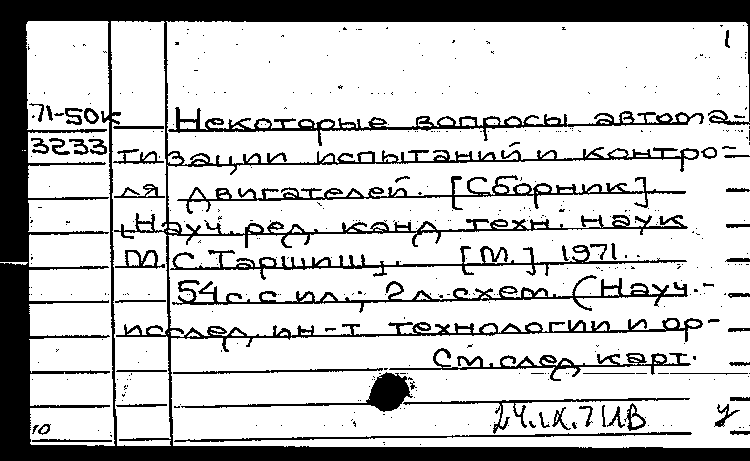 1
71-50к Некоторые вопросы автома-
3233 тизации испытаний и контро-
ля двигателей. [Сборник]
[Науч. ред. канд. техн. наук
М. С. Таршиш]. [М.], 1971.
54 с. с ил.; 2 л. схем. (Науч.-
исслед. ин-т технологии и ор-
См. след. карт.
24.IX.71
10